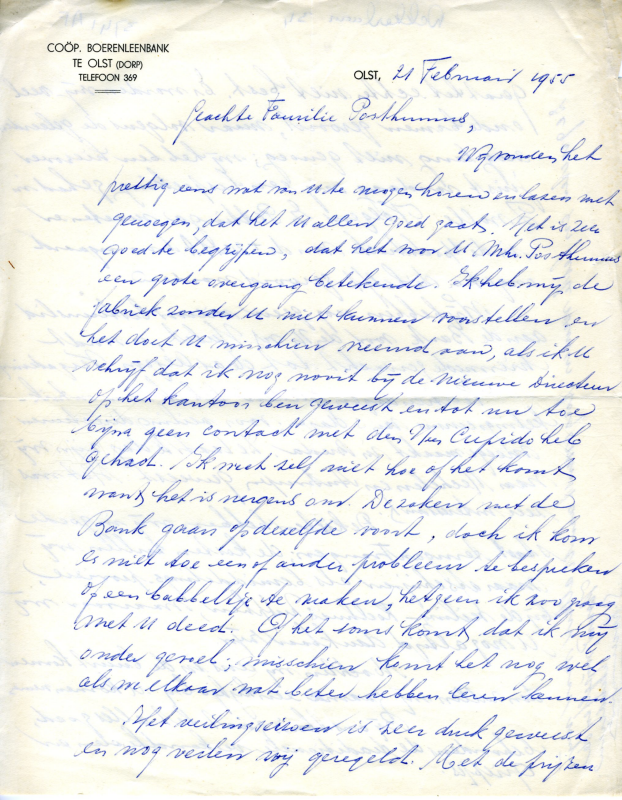 COÖP. BOERENLEENBANK
TE OLST (DORP)
TELEFOON 369
OLST, 21 Februari 1955
Geachte Familie Posthumus,
Wij vonden het
prettig eens wat van U te mogen horen en lazen met
genoegen, dat het U allen goed gaat. Het is zeer
goed te begrijpen, dat het voor U Mhr. Posthumus
een grote overgang betekende. Ik heb mij de
fabriek zonder U niet kunnen voorstellen en
het doet U misschien vreemd aan, als ik U
schrijf dat ik nog nooit bij de nieuwe Directeur
op het kantoor ben geweest en tot nu toe
bijna geen contact met den Hr Cupido heb
gehad. Ik weet zelf niet hoe of het komt
want het is nergens om. De zaken met de
Bank gaan op dezelfde voort, doch ik kom
er niet toe een of ander probleem te bespreken
of een babbeltje te maken, hetgeen ik zoo graag
met U deed. Of het soms komt, dat ik mij
ouder gevoel, misschien komt het nog wel
als we elkaar wat beter hebben leren kennen.
Het veilingseizoen is zeer druk geweest
en nog veilen wij geregeld. Met de prijzen